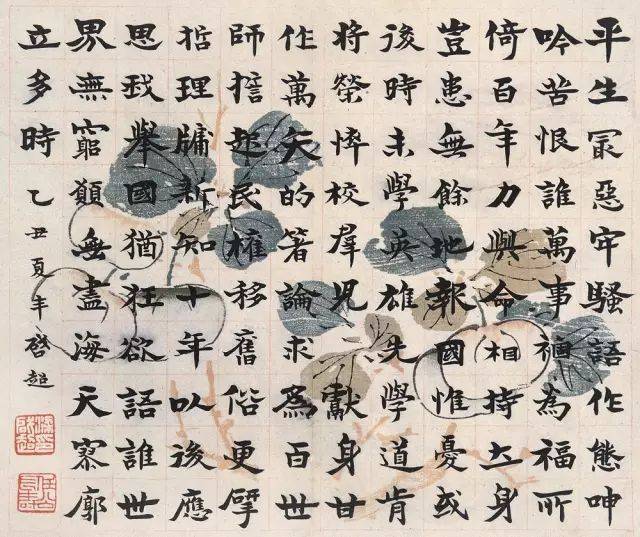 平生冣惡牢騷語作態呻
吟苦恨誰萬事禍為福所
倚百年力與命相持立身
豈患無餘地報國惟憂或
後時未學英雄先學道肯
將榮悴校羣兒獻身甘
作萬矢的著論求為百世
師起民權移舊俗更擘
哲理牖新知十年以後應
思我舉國猶狂欲語誰世
界無窮願無盡海天寥廓
立多時
乙丑夏啓超